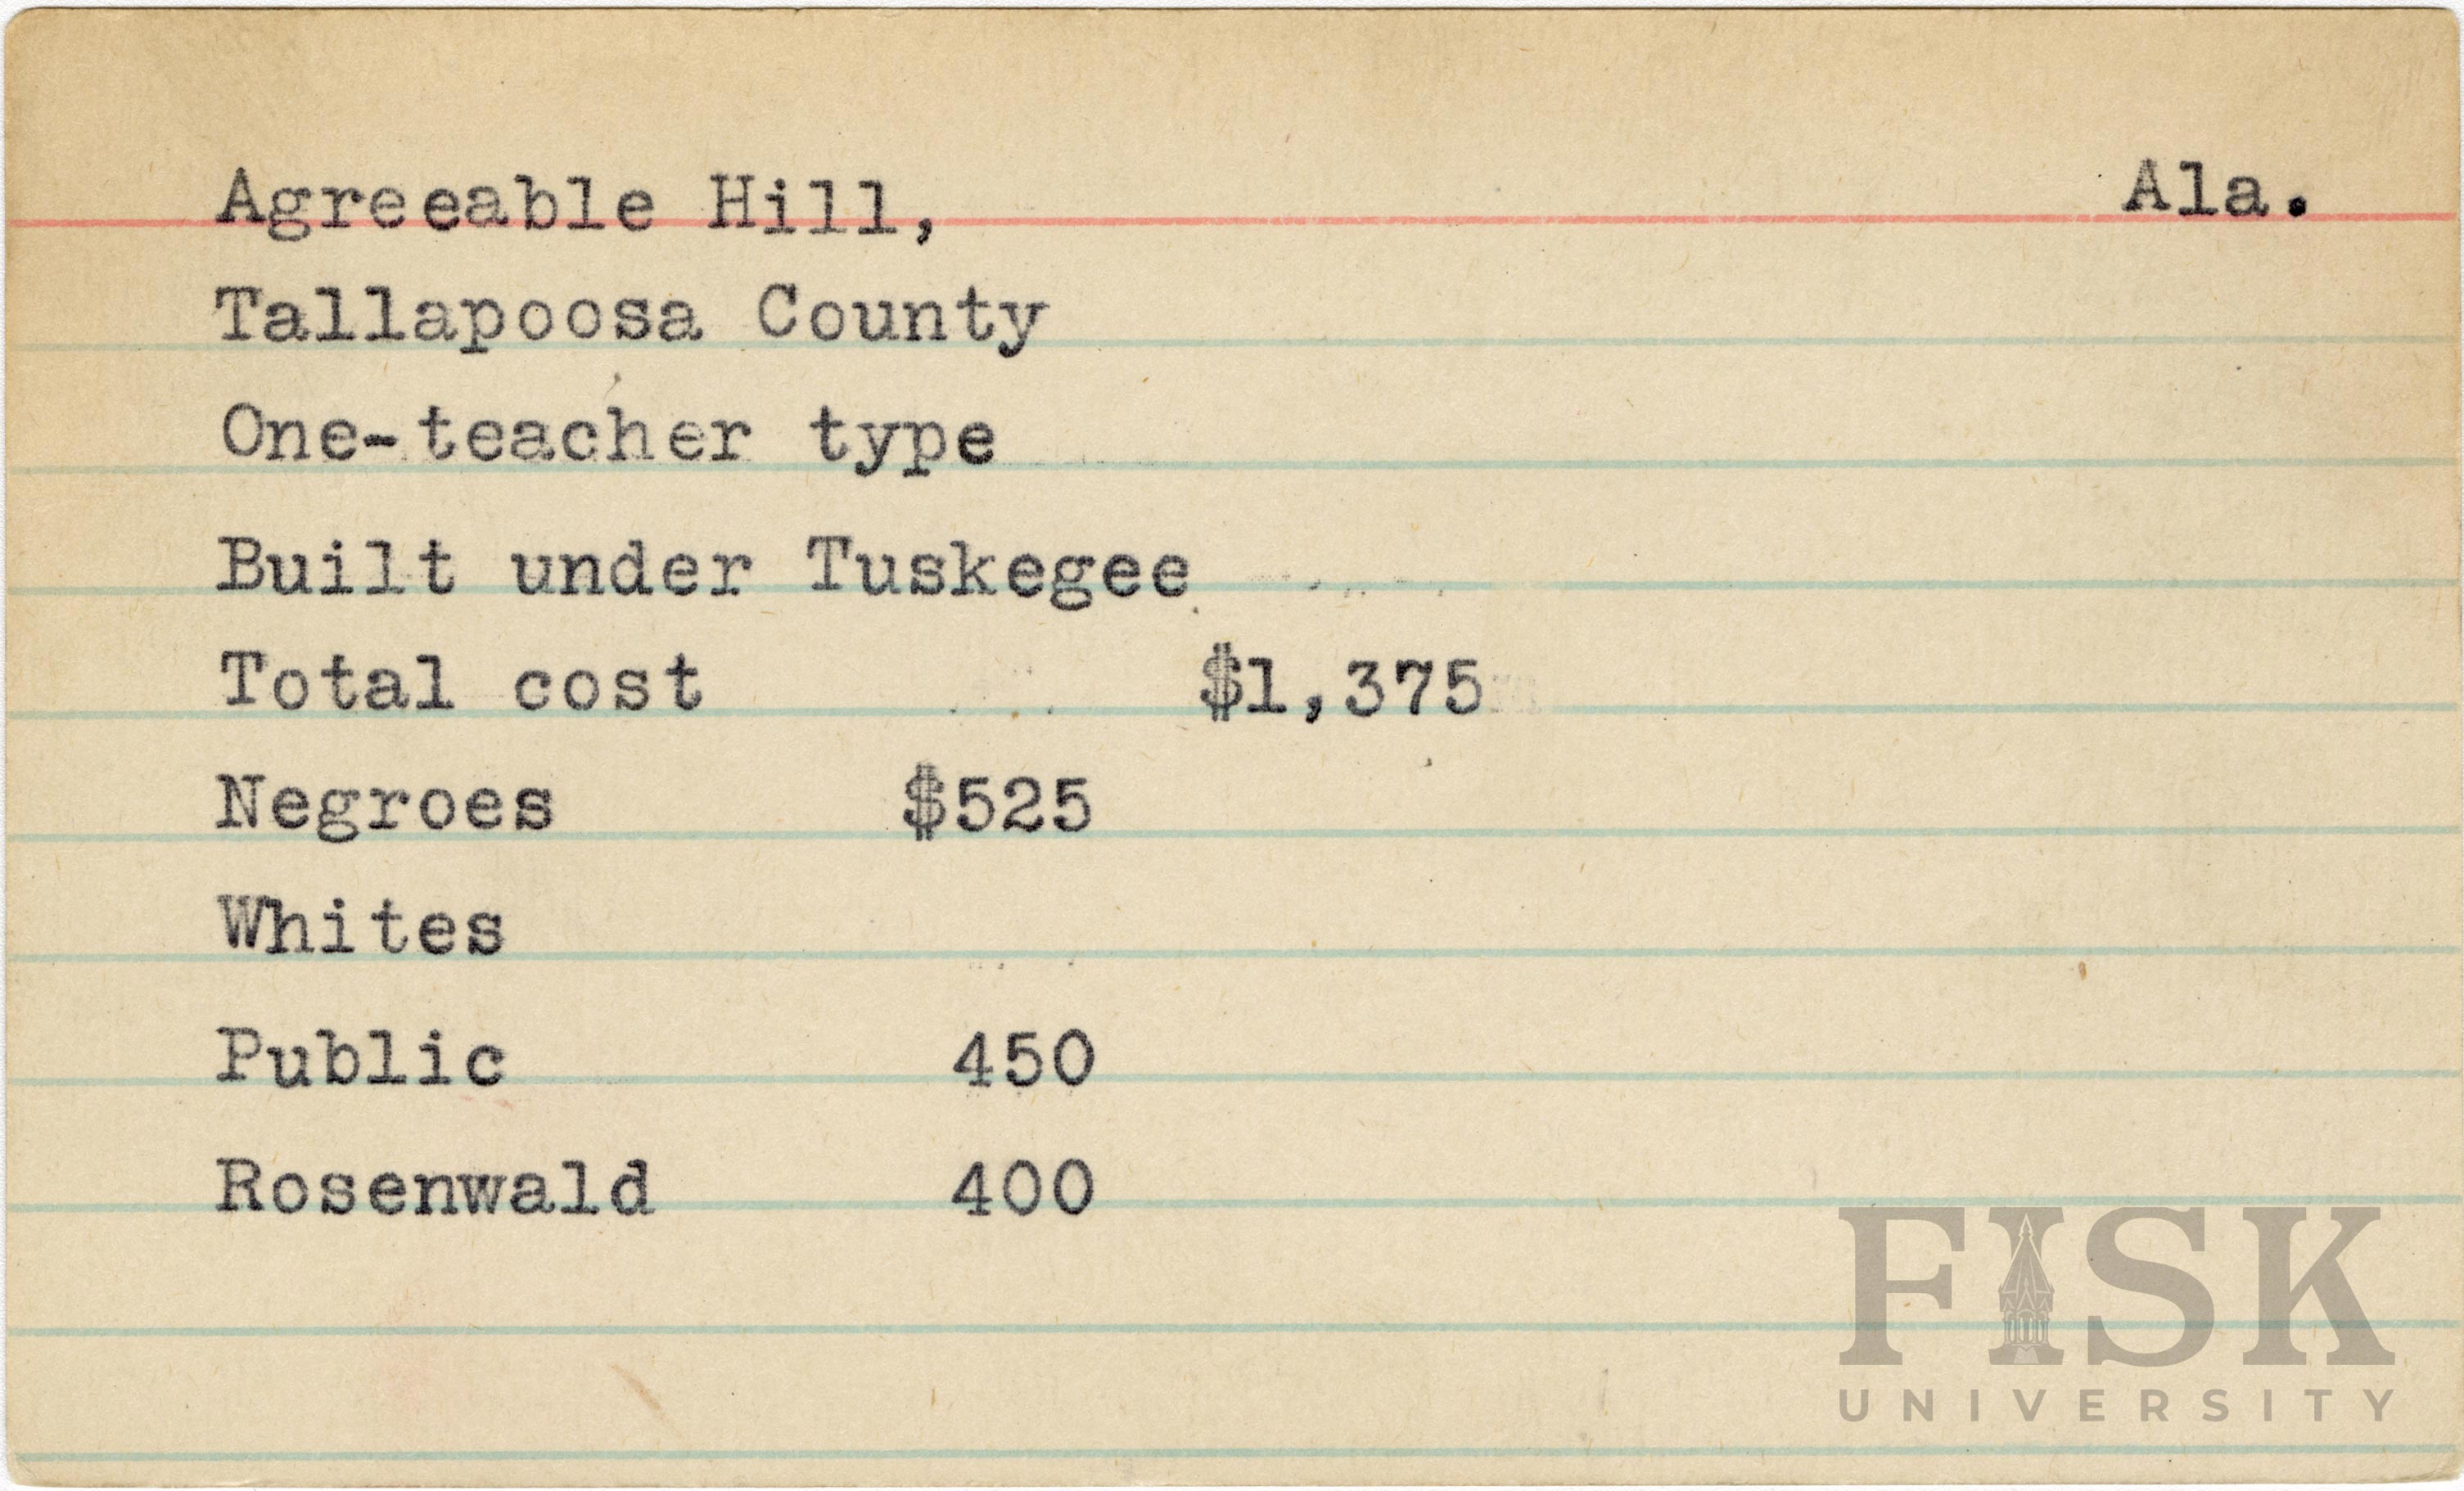 Agreeable Hill, Ala.
Tallapoosa County
One-teacher type
Built under Tuskegee
Total cost $1,375
Negroes $525
Whites
Public 450
Rosenwald 400
FISK
UNIVERSITY